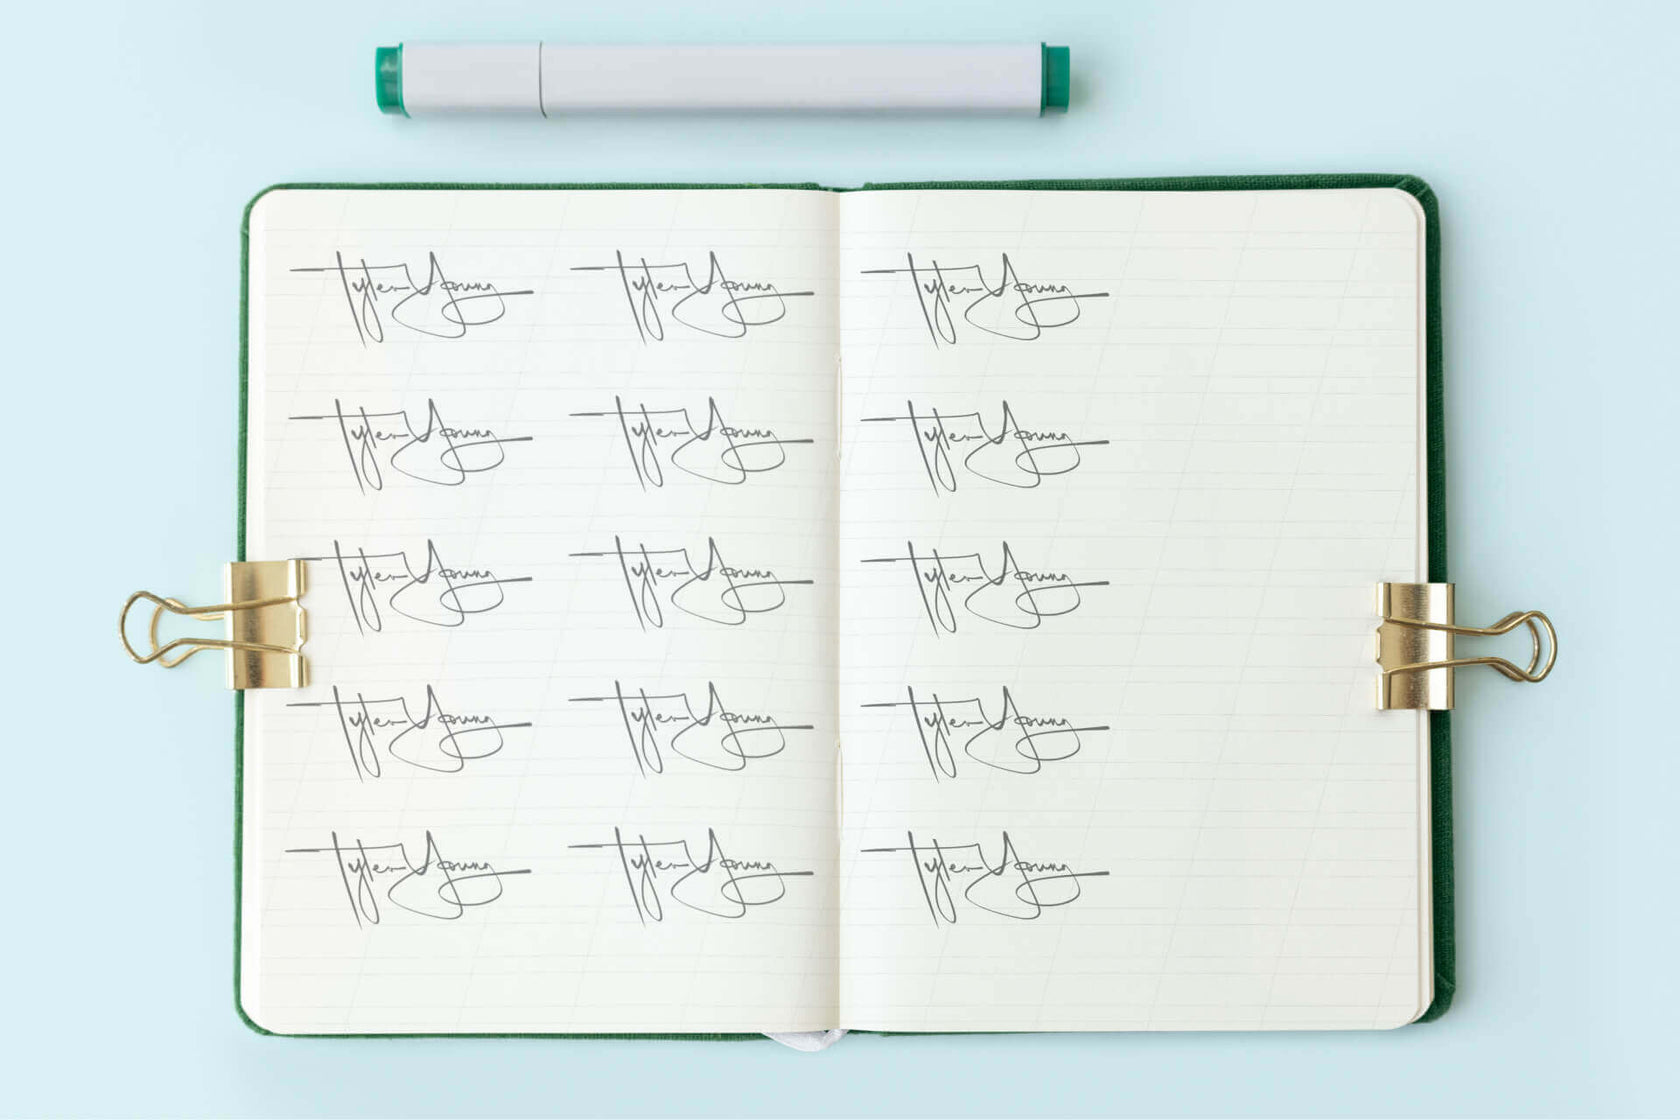 Tyler Young Tyler Young Tyler Young
Tyler Young Tyler Young Tyler Young
Tyler Young Tyler Young Tyler Young
Tyler Young Tyler Young Tyler Young
Tyler Young Tyler Young Tyler Young